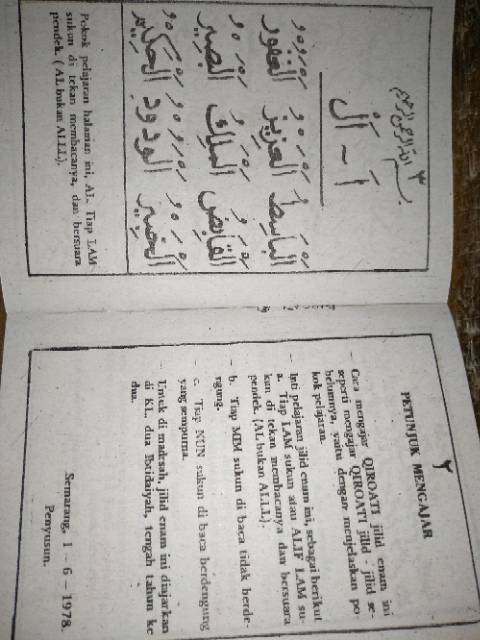 ٢
PETUNJUK MENGAJAR
- Cara mengajar QIROATI jilid enam ini
seperti mengajar QIROATI jilid - jilid se-
belumnya, yaitu dengan menjelaskan po-
kok pelajaran.
- Inti pelajaran jilid enam ini, sebagai berikut
a. Tiap LAM sukun atau ALIF LAM su-
kun di tekan membacanya dan bersuara
pendek. (AL bukan ALLL).
- b. Tiap MIM sukun di baca tidak berde-
ngung.
- c. Tiap NUN sukun di baca berdengung
yang sempurna.
- Untuk di madrasah, jilid enam ini diajarkan
di KL. dua Ibtidaiyah, tengah tahun ke
dua.
Semarang, 1 - 6 - 1978.
Penyusun.
٣
بسم الله الرحمن الرحيم
اَ ~ اَلْ
اَلْبَاسِطُ اَلْعَزِيْزُ اَلْغَفُوْرُ
اَلْقَابِضُ اَلْمَلِكُ اَلْبَصِيْرُ
اَلْخَبِيْرُ اَلْوَدُوْدُ اَلْحَكِيْمُ
Pokok pelajaran halaman ini, AL. Tiap LAM
sukun di tekan membacanya, dan bersuara
pendek. (AL bukan ALLL).